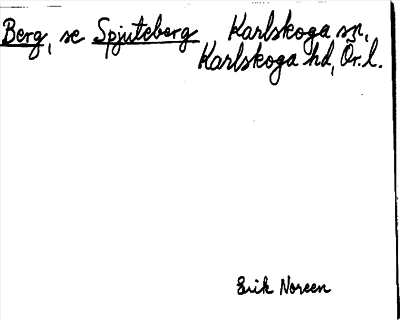 Berg, se Spjuteberg Karlskoga sn,
Karlskoga hd, Ör. l.
Erik Noreen